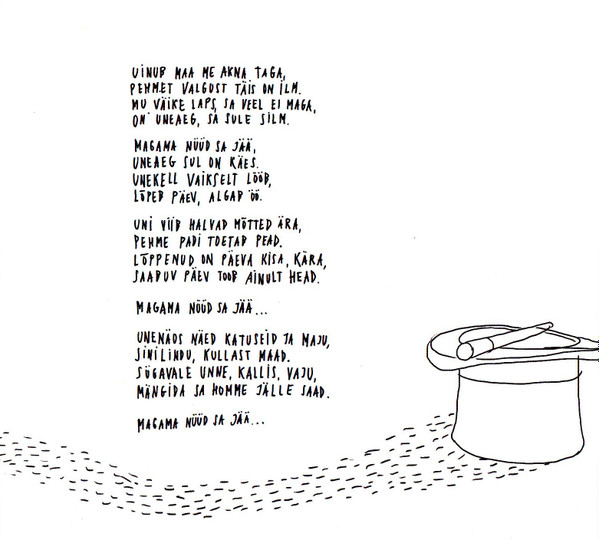 UINUB MAA ME AKNA TAGA,
PEHMET VALGUST TÄIS ON ILM.
MU VÄIKE LAPS, SA VEEL EI MAGA,
ON UNEAEG, SA SULE SILM.
MAGAMA NÜÜD SA JÄÄ,
UNEAEG SUL ON KÄES.
UNEKELL VAIKSELT LÖÖB,
LÕPEB PÄEV, ALGAB ÖÖ.
UNI VIIB HALVAD MÕTTED ÄRA,
PEHME PADI TOETAB PEAD.
LÕPPENUD ON PÄEVA KISA, KÄRA,
SAABUV PÄEV TOOB AINULT HEAD.
MAGAMA NÜÜD SA JÄÄ...
UNENÄOS NÄED KATUSEID JA MAJU,
SINILINDU, KULLAST MAAD.
SÜGAVALE UNNE, KALLIS, VAJU,
MÄNGIDA SA HOMME JÄLLE SAAD.
MAGAMA NÜÜD SA JÄÄ...